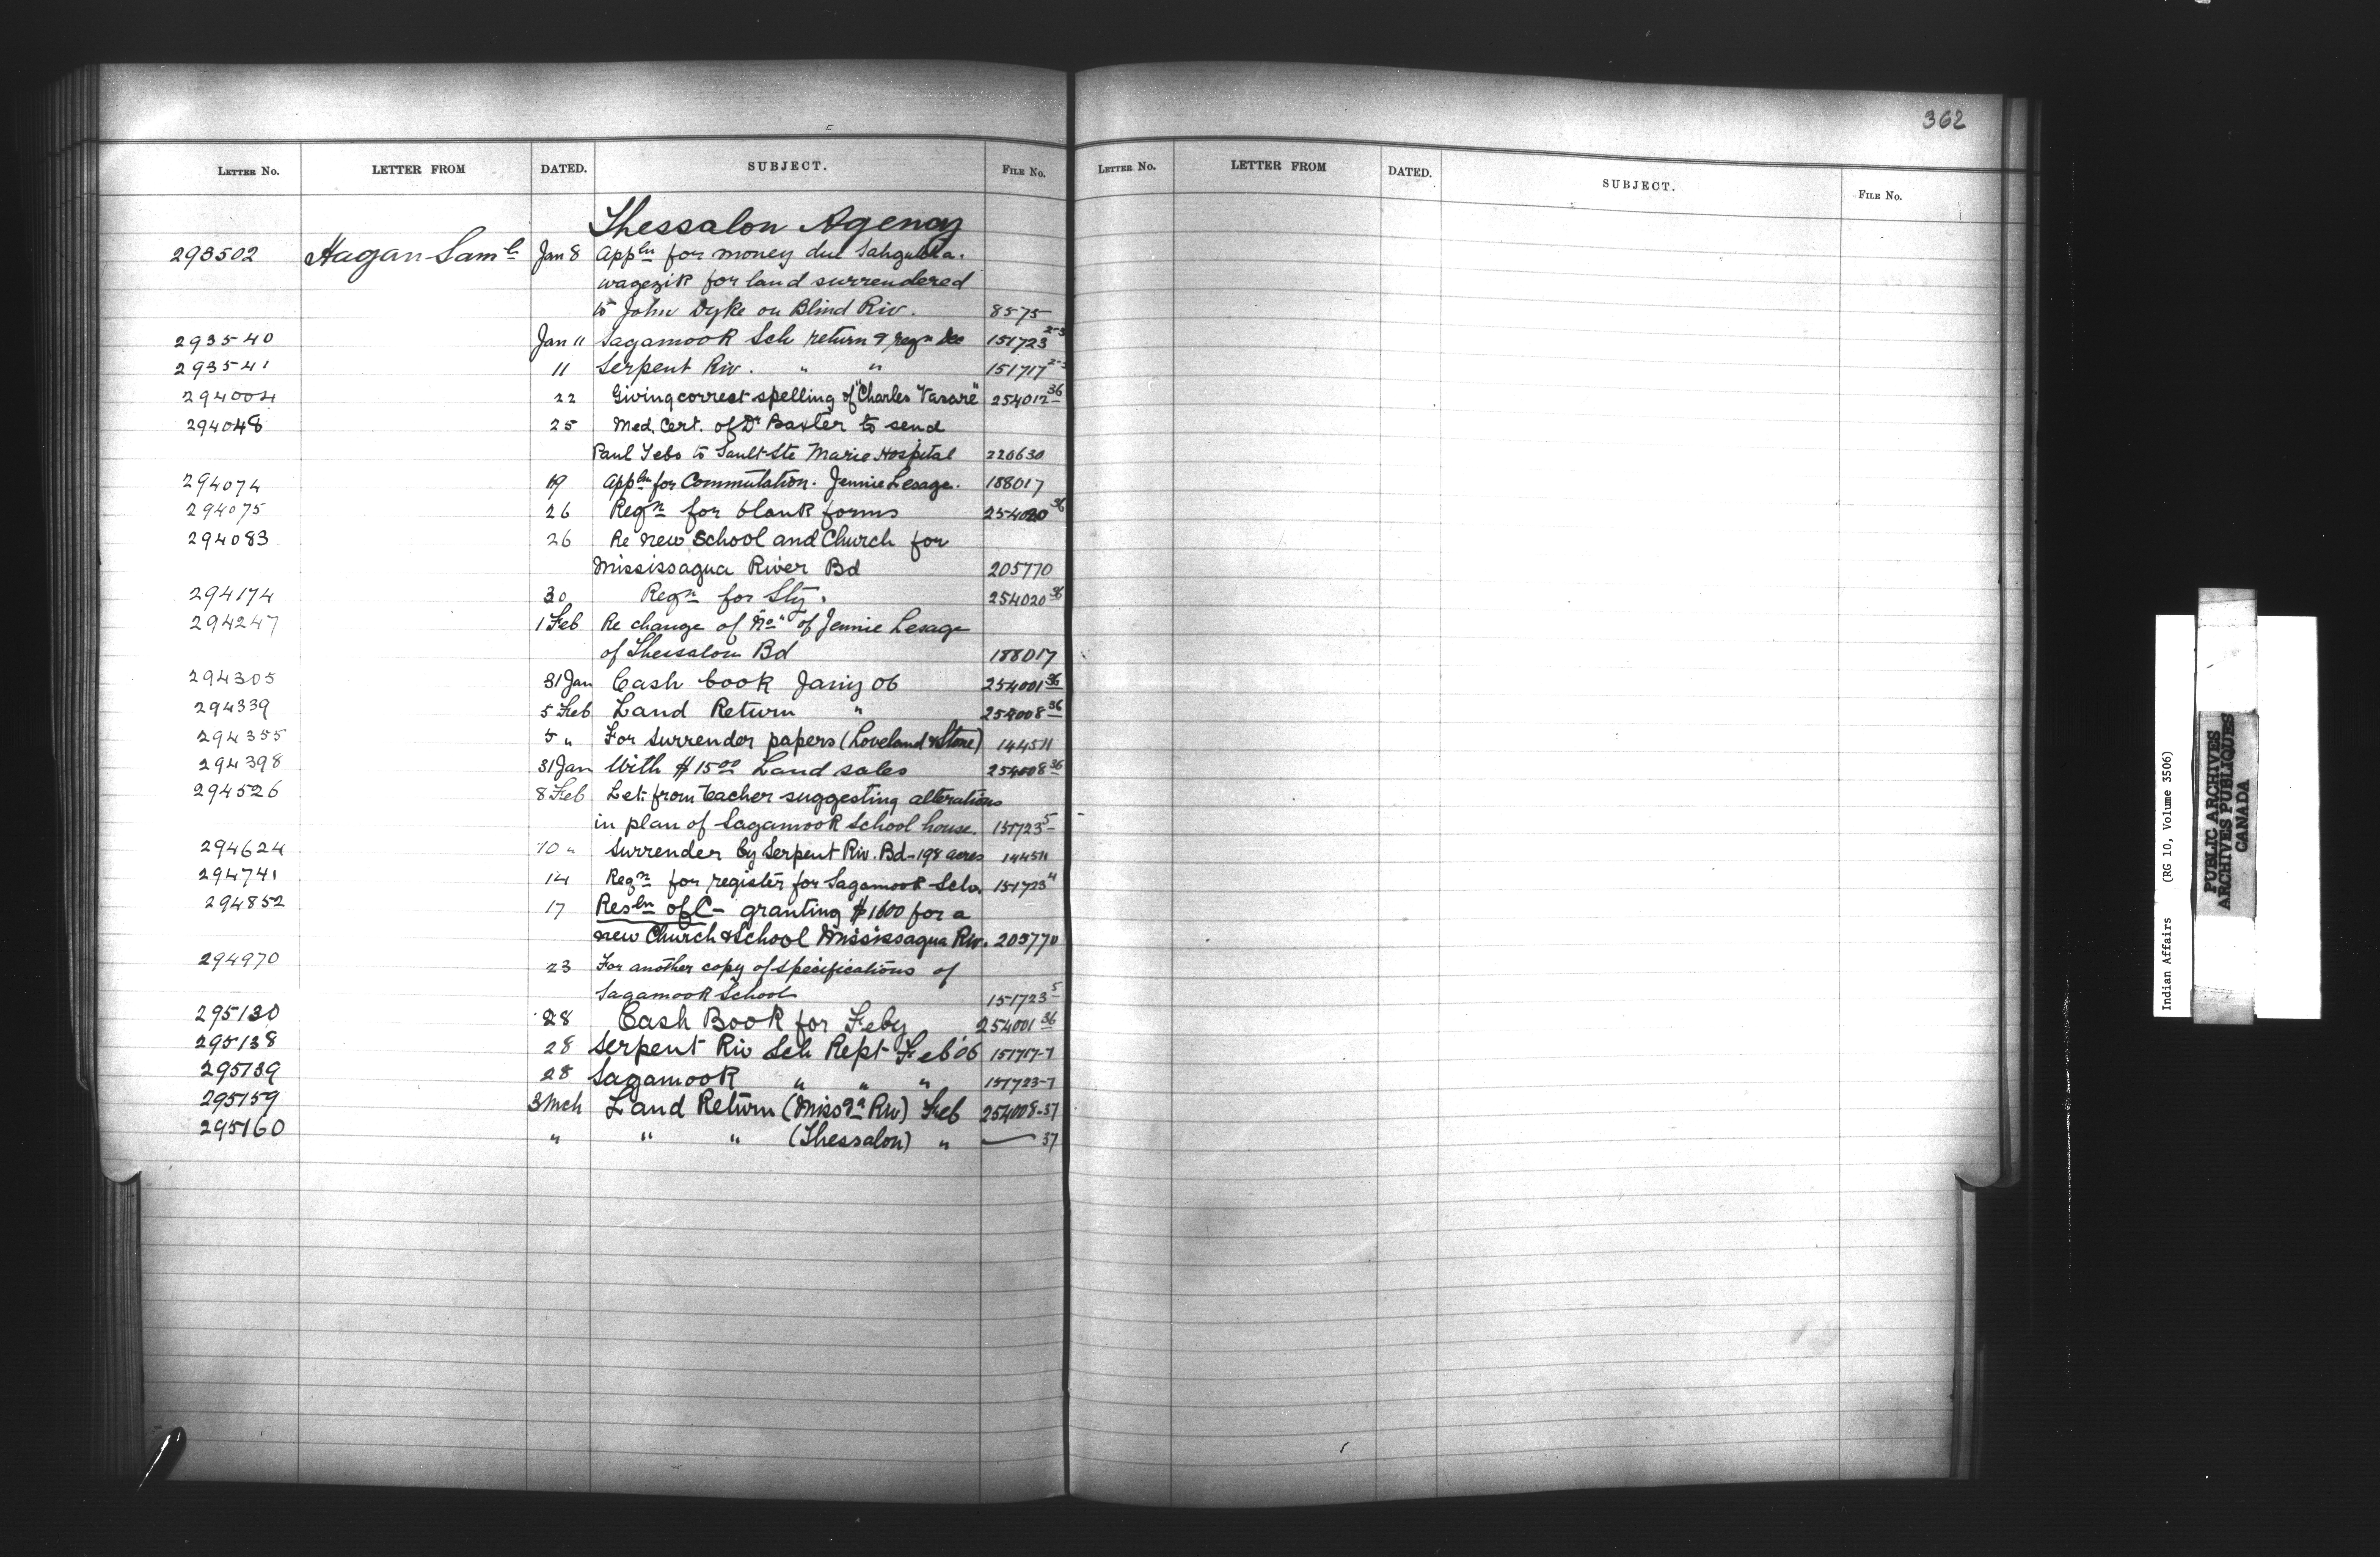 362
LETTER NO. LETTER FROM DATED. SUBJECT. FILE NO.
LETTER NO. LETTER FROM DATED. SUBJECT. FILE NO.
Thessalon Agency
293502 Hagan Saml Jan 8 Appln for money due
wagezik for land surrendered
to John Dyke on Blind Riv. 8575
293540 Jan 11 Sagamook Sch return & reqn Dec 151723
293541 11 Serpent Riv. " " 151717
294004 22 Giving correct spelling of "Charles Vasare" 254012 36
294048 25 Med. Cert. of Dr Baxter to send
Paul Tebo to Sault Ste Marie Hospital 220630
294074 19 Appln for Commutation. Jennie Lesage. 188017
294075 26 Reqn for blank forms 254020 36
294083 26 Re new School and Church for
Mississagua River Bd 205770
294174 30 Reqn for Sty. 254020 36
294247 1 Feb Re change of "No" of Jennie Lesage
of Thessalon Bd 188017
294305 31 Jan Cash book Jany 06 254001 36
294339 5 Feb Land Return " 254008 36
294355 5 " For surrender papers (Loveland & Stone) 144511
294398 31 Jan With $15 00 Land sales 254008 36
294526 8 Feb Let. from teacher suggesting alterations
in plan of Sagamook School house. 151723 5
294624 10 " Surrender by Serpent Riv. Bd - 198 acres 144511
294741 14 Reqn for register for Sagamook Sch. 151723
294852 17 Resln of C - granting $1600 for a
new Church & School Mississagua Riv. 205770
294970 23 For another copy of specifications of
Sagamook School 151723 5
295130 28 Cash Book for Feby 254001 36
295138 28 Serpent Riv Sch Rept Feb '06 151717-7
295139 28 Sagamook " " " 151723-7
295159 3 Mch Land Return (Missga Riv) Feb 254008-37
295160 " " " (Thessalon) " — 37
Indian Affairs (RG 10, Volume 3506)
PUBLIC ARCHIVES
ARCHIVES PUBLIQUES
CANADA